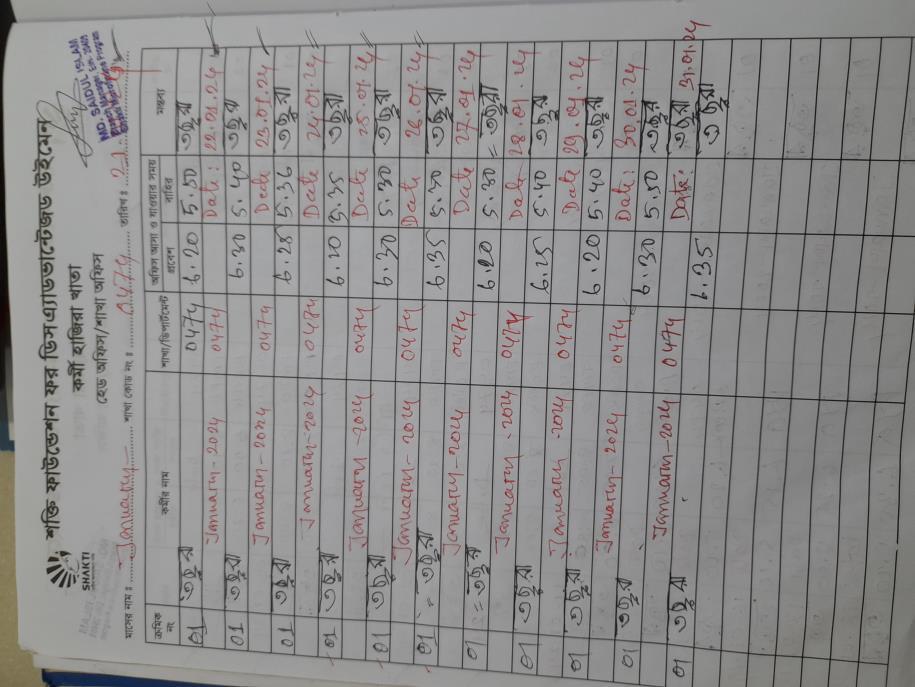 শক্তি ফাউন্ডেশন ফর ডিসএ্যাডভান্টেজড উইমেন
কর্মী হাজিরা খাতা
হেড অফিস/শাখা অফিস
SHAKTI
MD. SAIDUL ISLAM
মাসের নাম : January শাখা কোড নং : 0474 তারিখ :
ক্রমিক নং কর্মীর নাম শাখা/ডিপার্টমেন্ট অফিস আসা ও যাওয়ার সময় মন্তব্য
প্রবেশ বাহির
01 তছুরা 0474 6.20 5.50 তছুরা
January-2024 0474 Date: 22.01.24
01 তছুরা 6.30 5.40 তছুরা
January-2024 0474 Date 23.01.24
01 তছুরা 6.25 5.36 তছুরা
January-2024 0474 Date 24.01.24
01 তছুরা 6.20 5.35 তছুরা
January-2024 0474 Date 25.01.24
01 তছুরা 6.30 5.30 তছুরা
January-2024 0474 Date 26.01.24
01 তছুরা 6.35 5.30 তছুরা
January-2024 0474 Date 27.01.24
01 তছুরা 6.20 5.30 তছুরা
January-2024 0474 Date 28.01.24
01 তছুরা 6.25 5.40 তছুরা
January-2024 0474 Date 29.01.24
01 তছুরা 6.20 5.40 তছুরা
January-2024 0474 Date: 30.01.24
01 তছুরা 6.30 5.50 তছুরা
January-2024 0474 Date: তছুরা 31.01.24
01 তছুরা 6.35 তছুরা